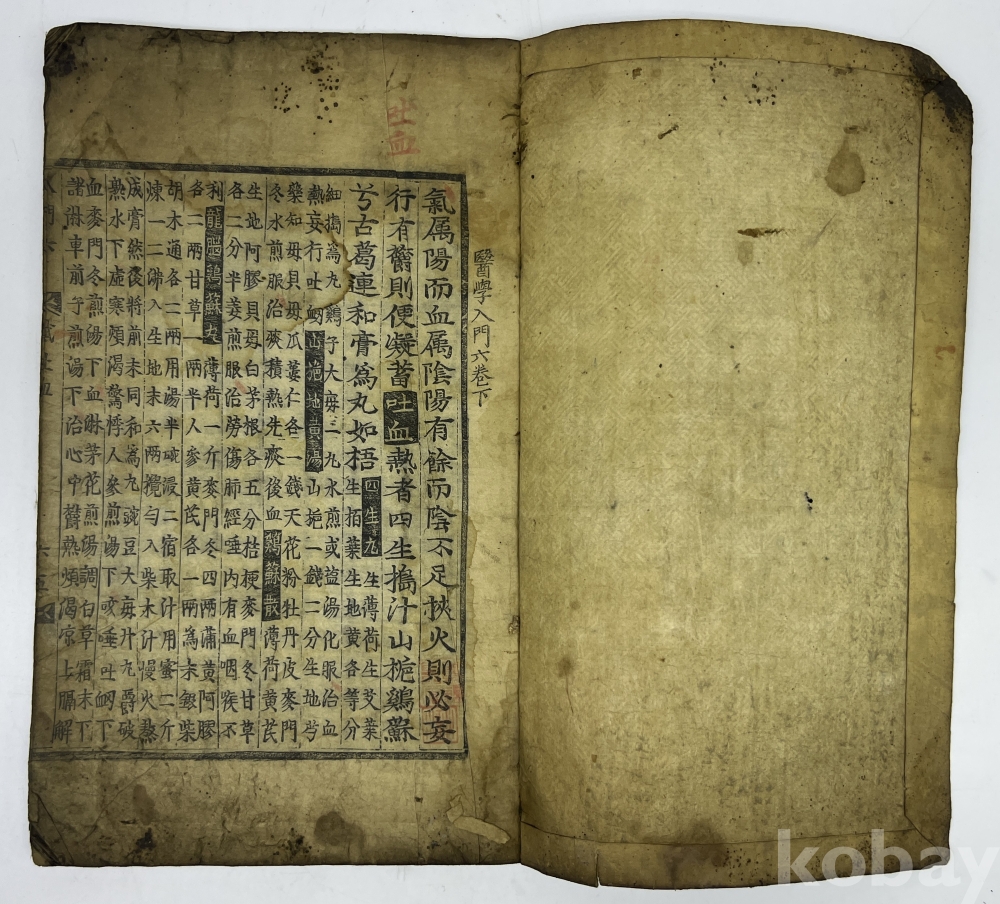 醫學入門六卷下
吐血
氣属陽而血属陰陽有餘而陰不足挾火則必妄
行有鬱則便凝蓄吐血熱者四生搗汁山梔鷄蘇
兮古葛連和膏爲丸如梧 四生丸 生薄荷生艾葉
生栢葉生地黄各等分
細搗爲丸鷄子大毎二丸水煎或盐湯化服治血
熱妄行吐衂山梔地黄湯山梔一錢二分生地芍
藥知母貝母瓜蔞仁各一錢天花粉牡丹皮麥門
冬水煎服治痰積熱先痰後血鷄蘇散薄荷黄芪
生地阿膠貝母白茅根各五分桔梗麥門冬甘草
各二分半姜煎服治勞傷肺經唾内有血咽疾不
利龍腦鷄蘇丸薄荷一斤麥門冬四兩蒲黄阿膠
各二兩甘草一兩半人參黄芪各一兩為末銀柴
胡木通各二兩用湯半碗浸二宿取汁用蜜二斤
煉一二佛入生地末六兩攪勻入柴木汁慢火熬
成膏然後將前末同和為丸豌豆大毎廾丸嚼破
熱水下虛寒煩渴驚悸人參煎湯下咳唾吐衂下
血麥門冬煎湯下血淋茅花煎湯調白草霜末下
諸淋車前子煎湯下治心中鬱熱煩渴凉上膈解
kobay